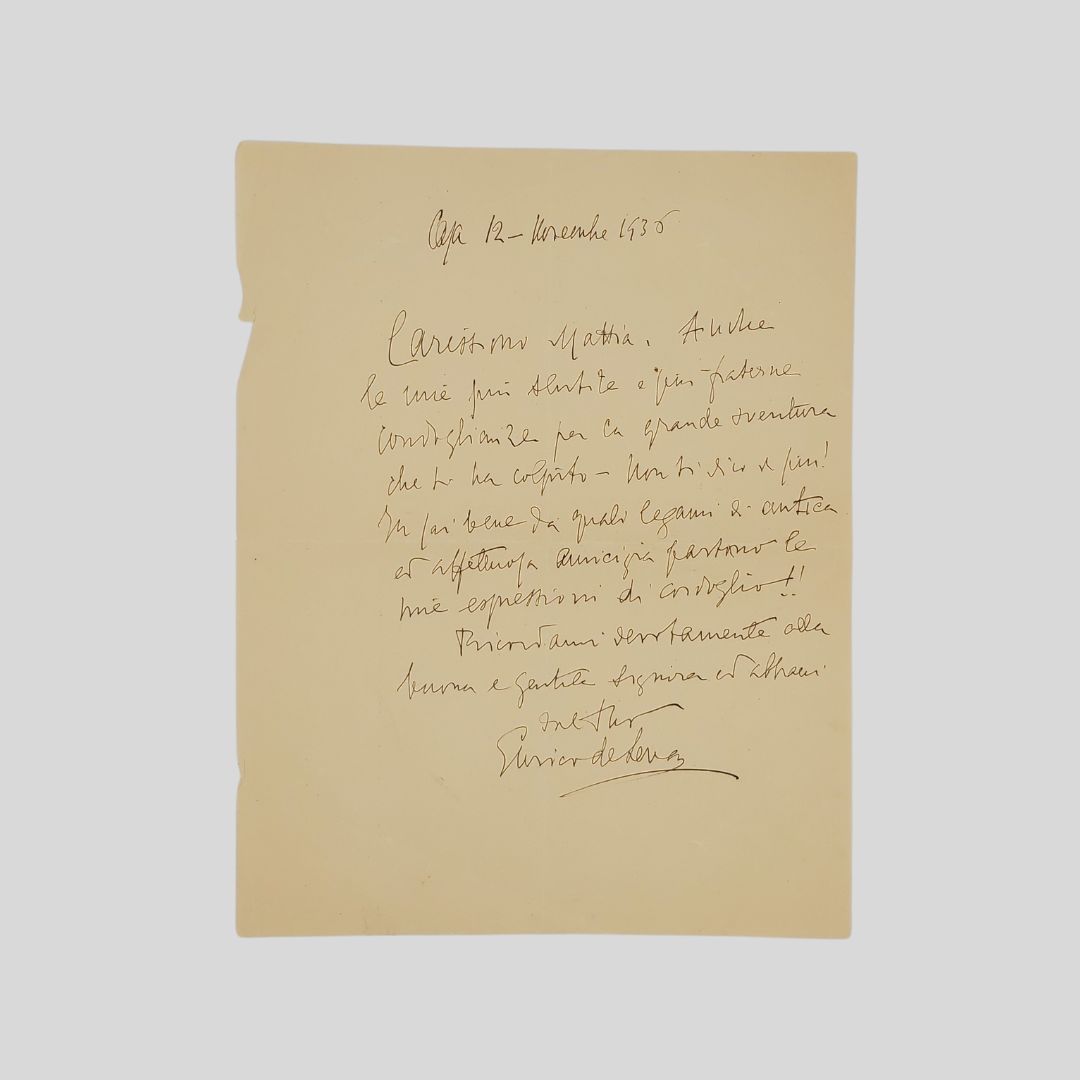 Casa 12 – Novembre 1936
Carissimo Mattia. Anche
le mie più sentite e più fraterne
condoglianze per la grande sventura
che ti ha colpito – Non ti dico di più!
Tu sai bene da quali legami di antica
ed affettuosa amicizia partono le
mie espressioni di cordoglio!!
Ricordami devotamente alla
buona e gentile Signora ed abbracci
dal tuo
Enrico de Leva